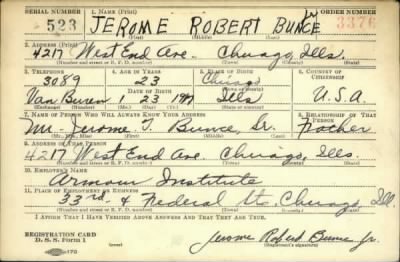 SERIAL NUMBER 1. NAME (Print) ORDER NUMBER
523 JEROME ROBERT BUNCE Jr 3376
(First) (Middle) (Last)
2. ADDRESS (Print)
4217 West End Ave. Chicago, Ills.
(Number and street or R. F. D. number) (Town) (County) (State)
3. TELEPHONE 4. AGE IN YEARS 5. PLACE OF BIRTH 6. COUNTRY OF CITIZENSHIP
3089 23 Chicago
DATE OF BIRTH (Town or county)
Van Buren 1 23 1917 Ills U.S.A.
(Exchange) (Number) (Mo.) (Day) (Yr.) (State or country)
7. NAME OF PERSON WHO WILL ALWAYS KNOW YOUR ADDRESS 8. RELATIONSHIP OF THAT PERSON
Mr. Jerome T. Bunce, Sr. Father
(Mr., Mrs., Miss) (First) (Middle) (Last)
9. ADDRESS OF THAT PERSON
4217 West End Ave. Chicago, Ills.
(Number and street or R. F. D. number) (Town) (County) (State)
10. EMPLOYER'S NAME
Armour Institute
11. PLACE OF EMPLOYMENT OR BUSINESS
33rd & Federal Sts. Chicago, Ill.
(Number and street or R. F. D. number) (Town) (County) (State)
I AFFIRM THAT I HAVE VERIFIED ABOVE ANSWERS AND THAT THEY ARE TRUE.
REGISTRATION CARD
D. S. S. Form 1 Jerome Robert Bunce Jr.
(Registrant's signature)